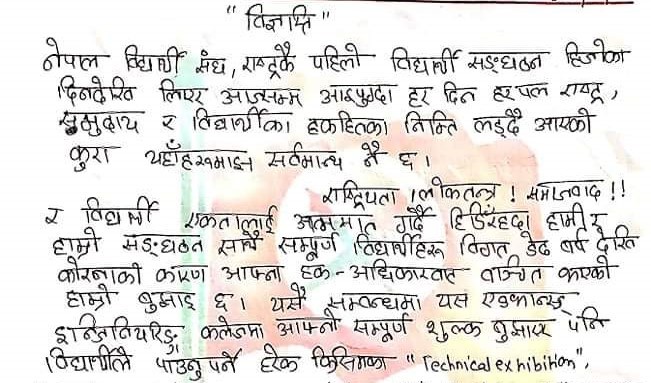 "विज्ञप्ति"
नेपाल विद्यार्थी संघ, राष्ट्रकै पहिलो विद्यार्थी सङ्घठन हिजोका
दिनदेखि लिएर आजसम्म आइपुग्दा हर दिन हर पल राष्ट्र,
समुदाय र विद्यार्थीका हकहितका निम्ति लड्दै आएको
कुरा यहाँहरुमाझ सर्वमान्य नै छ।
राष्ट्रियता ! लोकतन्त्र ! समाजवाद !!
र विद्यार्थी एकतालाई आत्मसात गर्दै हिडिरहदा हामी र
हाम्रो सङ्घठन साथै सम्पूर्ण विद्यार्थीहरु विगत डेढ वर्ष देखि
कोरोनाको कारण आफ्ना हक-अधिकारबाट वञ्चित भएको
हाम्रो बुझाइ छ। यसै सम्बन्धमा यस एडभान्स्ड
इन्जिनियरिङ्ग कलेजमा आफ्नो सम्पूर्ण शुल्क बुझाए पनि
विद्यार्थीले पाउनु पर्ने हरेक किसिमका "Technical exhibition",